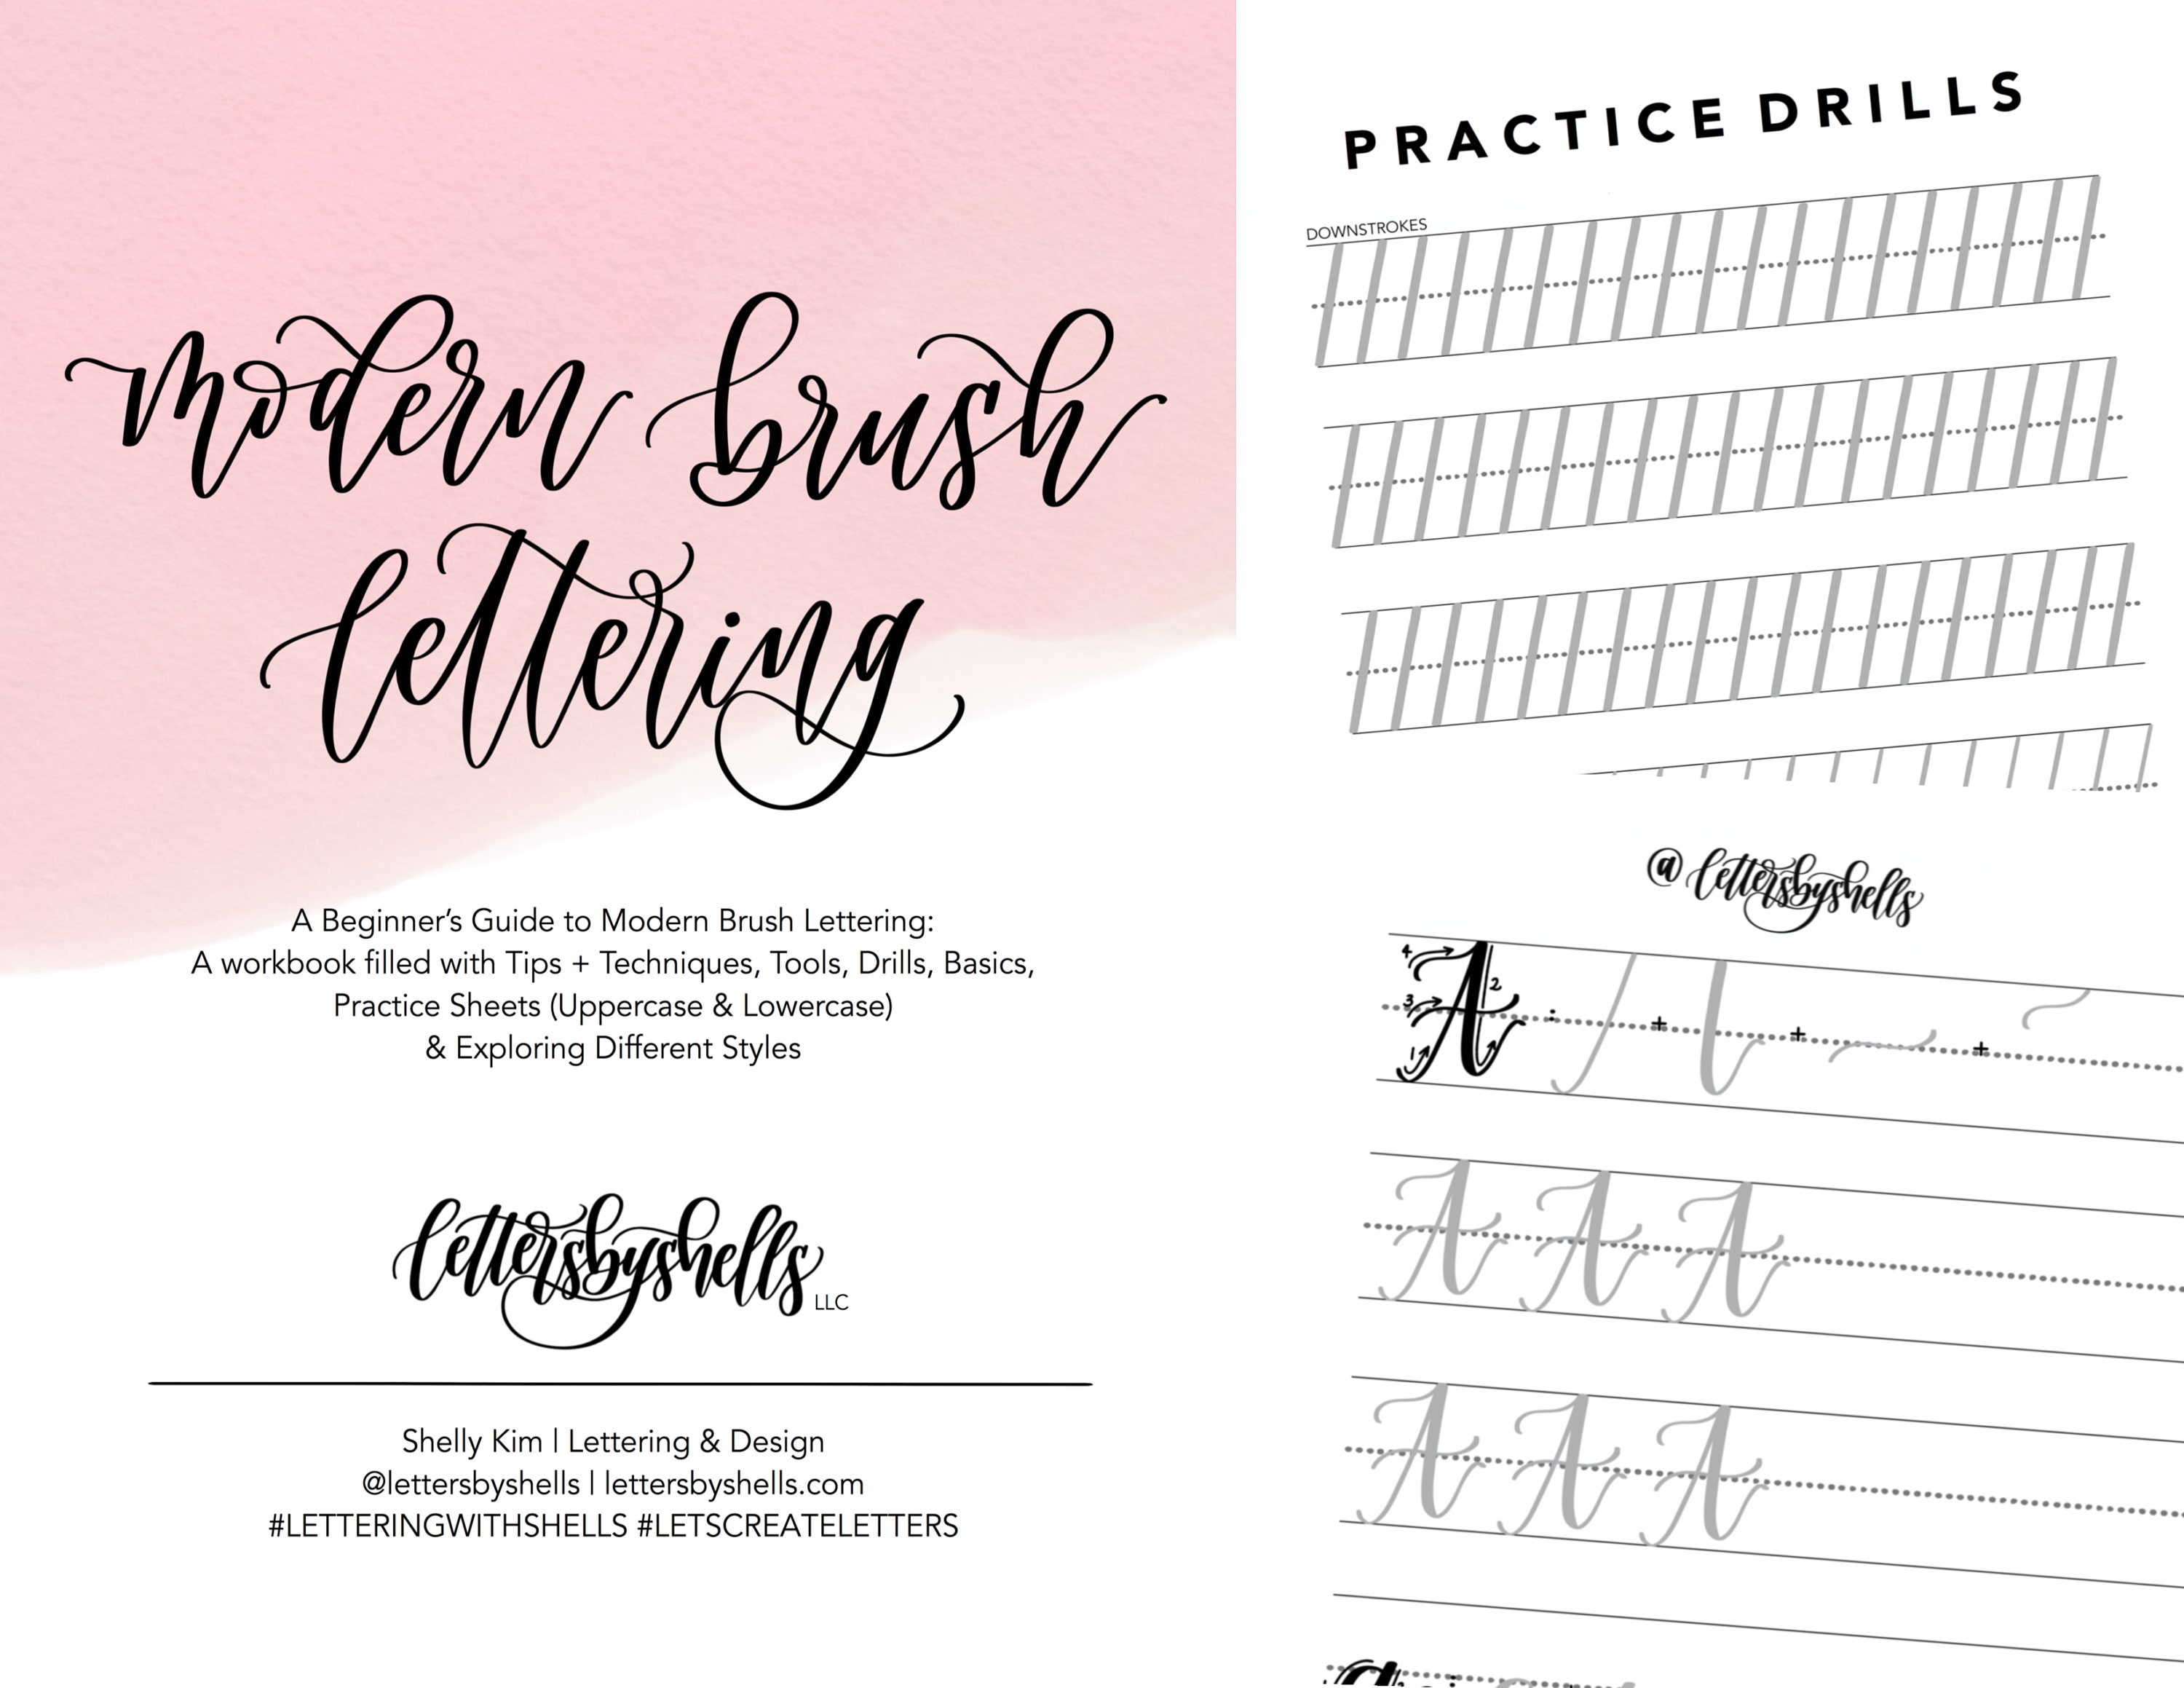 modern brush
lettering
A Beginner's Guide to Modern Brush Lettering:
A workbook filled with Tips + Techniques, Tools, Drills, Basics,
Practice Sheets (Uppercase & Lowercase)
& Exploring Different Styles
lettersbyshells LLC
Shelly Kim | Lettering & Design
@lettersbyshells | lettersbyshells.com
#LETTERINGWITHSHELLS #LETSCREATELETTERS
PRACTICE DRILLS
DOWNSTROKES
@lettersbyshells
4 3 1 A 2 : + + +
A A A
A A A